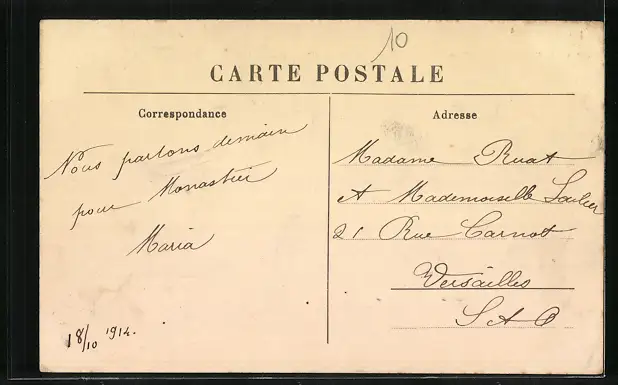 10
CARTE POSTALE
Correspondance
Adresse
Nous partons demain
pour Monastier
Maria
18/10 1914.
Madame Ruat
et Mademoiselle
21 Rue Carnot
Versailles
S et O